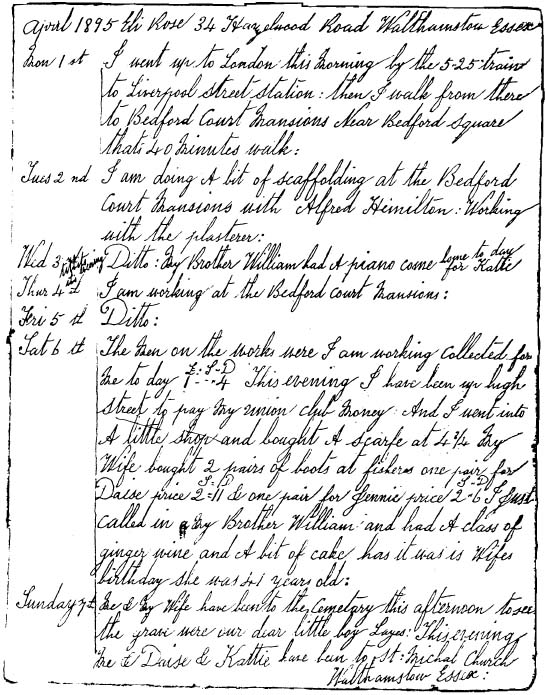 April 1895 Eli Rose 34 Hazelwood Road Walthamstow Essex
Mon 1 st I went up to London this Morning by the 5-25 train
to Liverpool street station: then I walk from there
to Bedford Court Mansions Near Bedford Square
thats 40 Minutes walk:
Tues 2 nd I am doing A bit of scaffolding at the Bedford
Court Mansions with Alfred Himilton: Working
with the plasterer:
Wed 3 Ditto: My Brother William had A piano come home to day for Kattie
Thur 4 th I am working at the Bedford Court Mansions:
Fri 5 th Ditto:
Sat 6 th The Men on the works were I am working collected for
Me to day £1-"-4 This evening I have been up high
street to pay My union club Money And I went into
A little shop and bought A scarfe at 4¾ My
Wife bought 2 pairs of boots at fishers one pair for
Daise price 2=11 & one pair for Jennie price 2=6 I Just
called in My Brother William and had A class of
ginger wine and A bit of cake has it was is Wifes
birthday she was 41 years old:
Sunday 7th Me & My Wife have been to the Cemetary this afternoon to see
the grave were our dear little boy Layes: This evening
Me & Daise & Kattie have been to St: Michal Church
Walthamstow Essex: